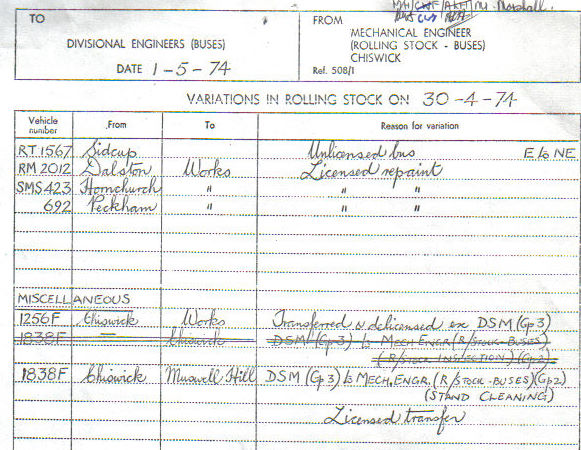 M. Marshall.
TO
DIVISIONAL ENGINEERS (BUSES)
DATE 1-5-74
FROM
MECHANICAL ENGINEER
(ROLLING STOCK - BUSES)
CHISWICK
Ref. 508/1
VARIATIONS IN ROLLING STOCK ON 30-4-74
Vehicle number From To Reason for variation
RT 1567 Sidcup Unlicensed bus E to NE
RM 2012 Dalston Works Licensed repaint
SMS 423 Hornchurch " " "
692 Peckham " " "
MISCELLANEOUS
1256F Chiswick Works Transferred & delicensed ex DSM (Gp 3)
1838F — Chiswick DSM (Gp 3) to MECH ENGR (R/STOCK-BUSES)
(R/STOCK INSPECTION) (Gp 2)
1838F Chiswick Muswell Hill DSM (Gp 3) to MECH. ENGR. (R/STOCK-BUSES)(Gp2)
(STAND CLEANING)
Licensed transfer